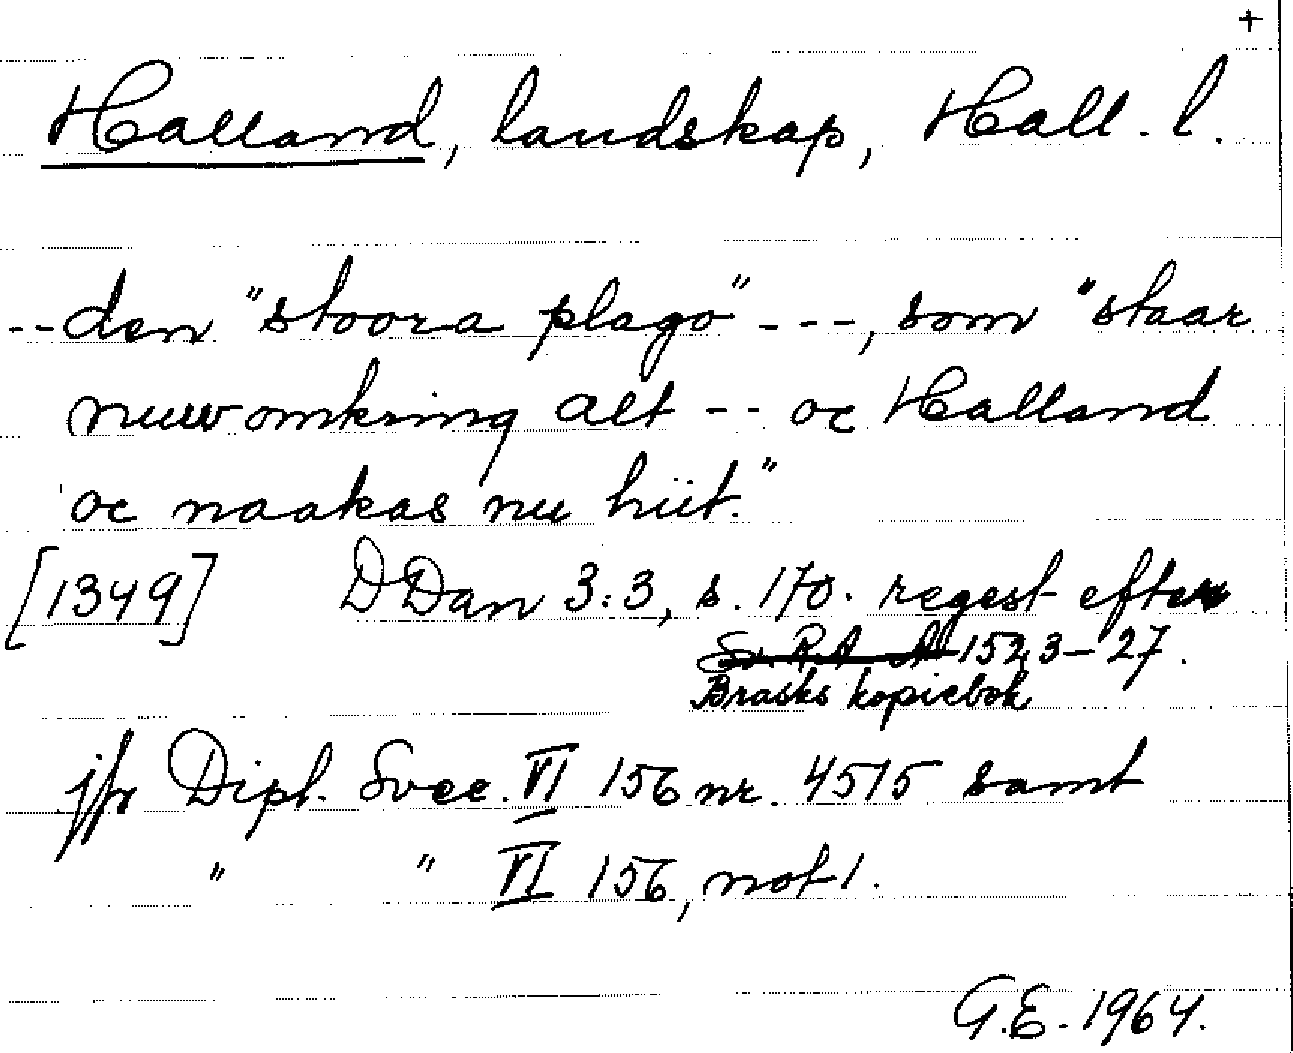 +
Halland, landskap, Hall. l.
-- den "stoora plago" ---, som "staar
nuuw omkring alt -- oc Halland
oc naakas nu hiit."
[1349] DDan 3:3, s. 170. regest efter
Sv. R.A. A 152, 3-27.
Brasks kopiebok
jfr Dipl. Svec. VI 156 nr. 4515 samt
" " VI 156, not 1.
G.E. 1964.